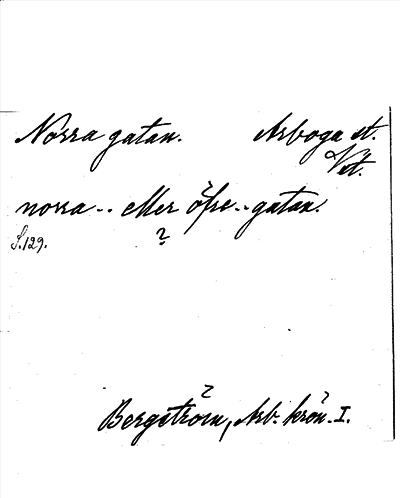 Norra gatan. Arboga st.
Vstl.
norra - - eller öfre - - gatan.
S. 129.
Bergström, Arb. krön. I.